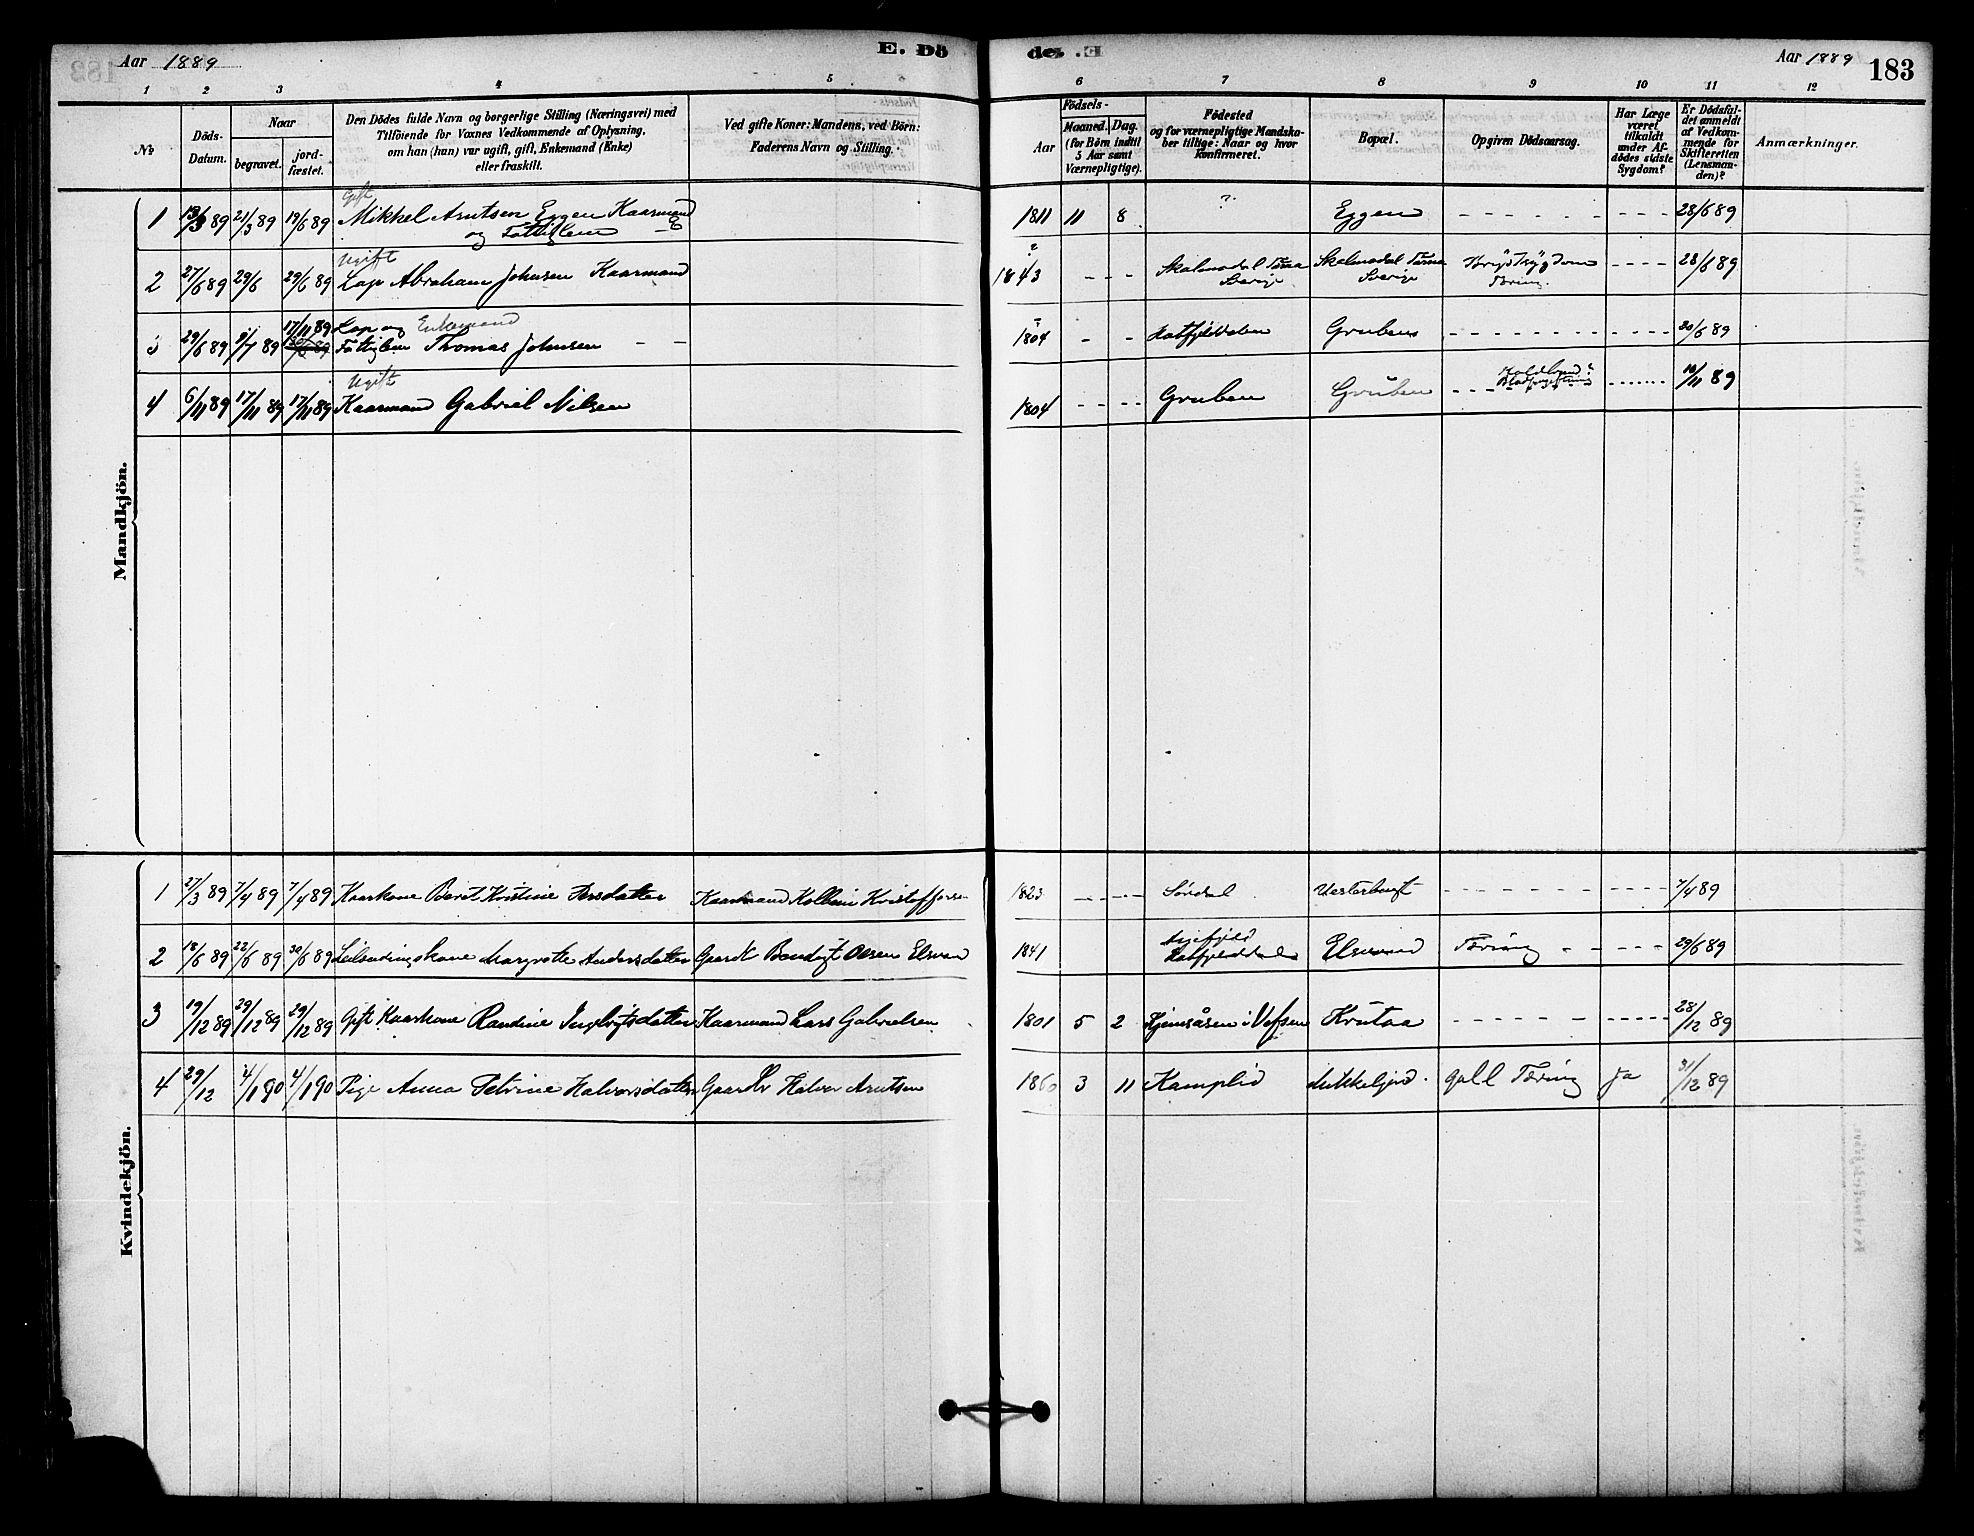 Aar 1889
E. Dö
des. E
Aar 1889
183
1 2 3 4 5 6 7 8 9 10 11 12
№
Döds-Datum.
Naar
begravet.
jord-fæstet.
Den Dödes fulde Navn og borgerlige Stilling (Næringsvei) med
Tilföiende for Voxnes Vedkommende af Oplysning,
om han (hun) var ugift, gift, Enkemand (Enke)
eller fraskilt.
Ved gifte Koner: Mandens, ved Börn:
Faderens Navn og Stilling.
Födsels-
Aar
Maaned. Dag.
(for Börn indtil
5 Aar samt
Værnepligtige).
Födested
og for værnepligtige Mandska-
ber tillige: Naar og hvor
Konfirmeret.
Bopæl.
Opgiven Dödsaarsag.
Har Læge
været
tilkaldt
under Af-
dödes sidste
Sygdom?
Er Dödsfal-
det anmeldt
af Vedkom-
mende for
Skifteretten
(Lensman-
den)?
Anmærkninger.
Mandkjön.
Gift
1 13/3 89 21/3 89 19/6 89 Mikkel Arntsen Eggen Kaarmand 1811 11 8 ? Eggen - - - - - - - - - 28/6 89
og Fattiglem
Ugift
2 27/6 89 29/6 29/6 89 Lap Abraham Johnsen Kaarmand ? 1843 - - - Skalmodal Tärna Skalmodal Tärna Brystsygdom - - - - 28/6 89
Sverige Sverige Tæring.
17/11 89 Lap og Enkemand
3 29/6 89 9/7 89 Fattiglem Thomas Johnsen - - ? 1804 - - Hatfjelddalen Gruben - - - - - - - - - - - - 30/6 89
Ugift
4 6/11 89 17/11 89 17/11 89 Kaarmand Gabriel Nilsen 1804 - - - - Gruben Gruben - - - Koldbrand? - - - - 10/11 89
Kvindekjön.
1 27/3 89 7/4 89 7/4 89 Kaarkone Beret Kristine Persdatter Kaarmand Kolbein Kristoffersen 1823 - - - - - Vesterbugt - - - - - - - - - - - - 7/4 89
2 18/6 89 22/6 89 30/6 89 Leilændingskone Margrethe Andersdatter Gaardbr Bendigt Olsen Elsvand 1841 Hatfjelddalen Elsvand Tæring - - - - - 29/6 89
3 19/12 89 29/12 89 29/12 89 Gift Kaarkone Randine Ingebrigtsdatter Kaarmand Lars Gabrielsen 1801 5 2 Hjemaasen i Vefsen Krutaa - - - - - - - - - - - 28/12 89
4 29/12 4/1 90 4/1 90 Pige Anna Petrine Halvorsdatter Gaardbr Halvor Arntsen 1860 3 11 Kamplid Mikkeljord. gall Tæring ja 31/12 89